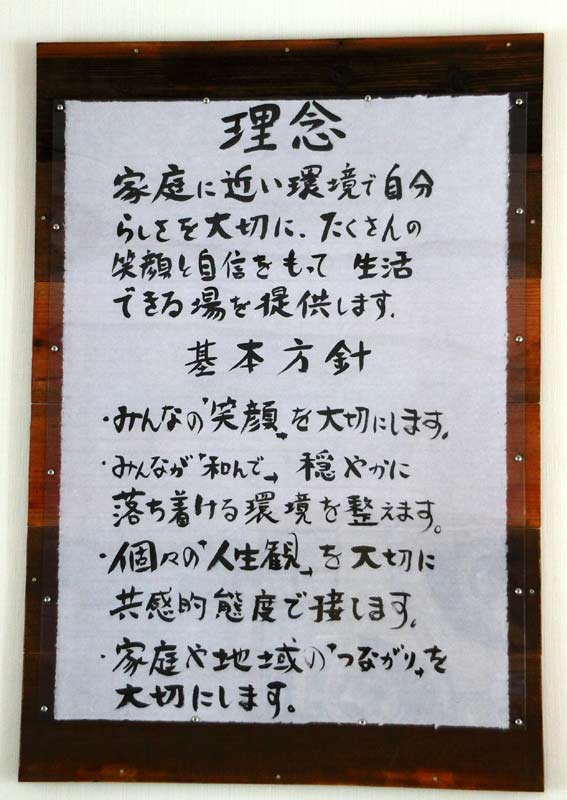 理念
家庭に近い環境で自分
らしさを大切に、たくさんの
笑顔と自信をもって 生活
できる場を提供します.
基本方針
・みんなの「笑顔」を大切にします。
・みんなが「和んで」穏やかに
落ち着ける環境を整えます。
・個々の「人生観」を大切に
共感的態度で接します。
・家庭や地域の「つながり」を
大切にします。